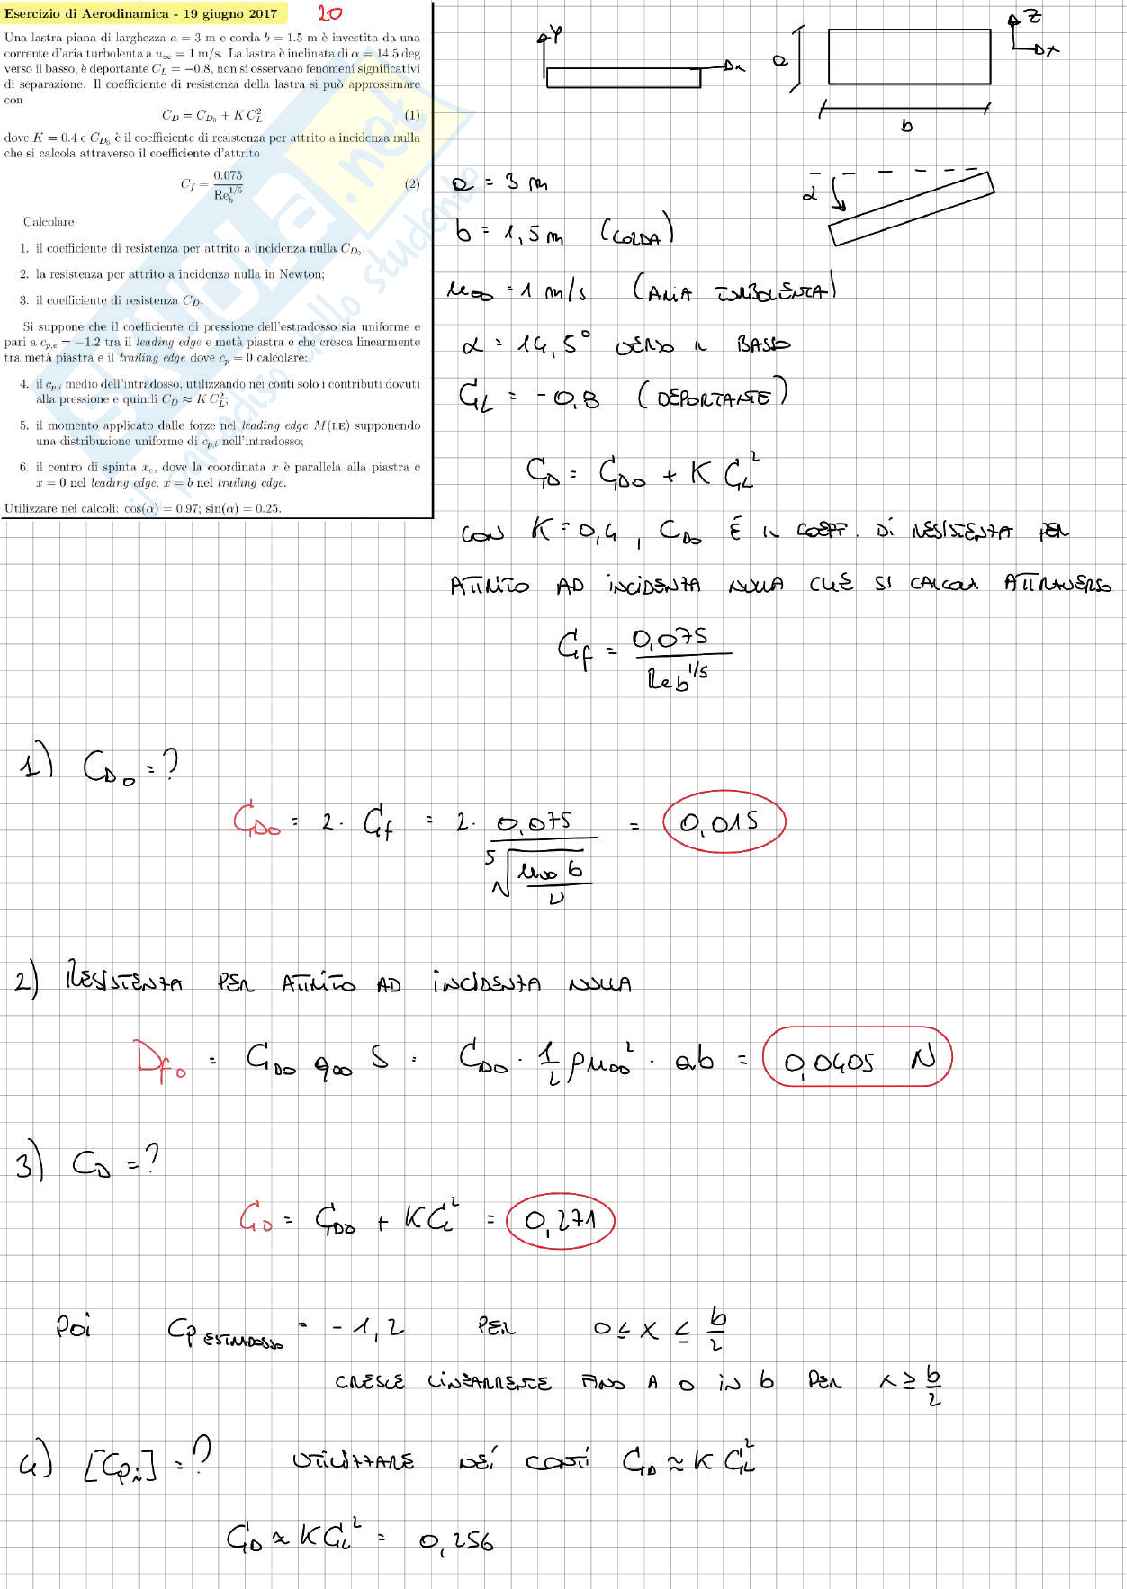 Esercizio di Aerodinamica - 19 giugno 2017
20
Una lastra piana di larghezza a = 3 m e corda b = 1.5 m è investita da una
corrente d'aria turbolenta a u∞ = 1 m/s. La lastra è inclinata di α = 14.5 deg
verso il basso, è deportante C_L = −0.8, non si osservano fenomeni significativi
di separazione. Il coefficiente di resistenza della lastra si può approssimare
con
C_D = C_D0 + K C_L^2 (1)
dove K = 0.4 e C_D0 è il coefficiente di resistenza per attrito a incidenza nulla
che si calcola attraverso il coefficiente d'attrito
C_f = 0.075 / Re_b^1/5 (2)
Calcolare
1. il coefficiente di resistenza per attrito a incidenza nulla C_D0
2. la resistenza per attrito a incidenza nulla in Newton;
3. il coefficiente di resistenza C_D.
Si suppone che il coefficiente di pressione dell'estradosso sia uniforme e
pari a c_p,e = −1.2 tra il leading edge e metà piastra e che cresca linearmente
tra metà piastra e il trailing edge dove c_p = 0 calcolare:
4. il c_p,i medio dell'intradosso, utilizzando nei conti solo i contributi dovuti
alla pressione e quindi C_D ≈ K C_L^2;
5. il momento applicato dalle forze nel leading edge M(LE) supponendo
una distribuzione uniforme di c_p,i nell'intradosso;
6. il centro di spinta x_c, dove la coordinata x è parallela alla piastra e
x = 0 nel leading edge, x = b nel trailing edge.
Utilizzare nei calcoli: cos(α) = 0.97; sin(α) = 0.25.
y
x
a
b
z
x
α
a = 3 m
b = 1,5 m (CORDA)
u∞ = 1 m/s (ARIA TURBOLENTA)
α = 14,5° VERSO IL BASSO
C_L = -0,8 (DEPORTANTE)
C_D = C_D0 + K C_L^2
CON K = 0,4, C_D0 È IL COEFF. DI RESISTENZA PER
ATTRITO AD INCIDENZA NULLA CHE SI CALCOLA ATTRAVERSO
C_f = 0,075 / Re_b^1/5
1) C_D0 = ?
C_D0 = 2 · C_f = 2 · 0,075 / ⁵√(u∞ b / ν) = 0,015
2) RESISTENZA PER ATTRITO AD INCIDENZA NULLA
D_f0 = C_D0 q∞ S = C_D0 · 1/2 ρ u∞^2 · ab = 0,0405 N
3) C_D = ?
C_D = C_D0 + K C_L^2 = 0,271
POI Cp ESTRADOSSO = -1,2 PER 0 ≤ x ≤ b/2
CRESCE LINEARMENTE FINO A 0 IN b PER x ≥ b/2
4) [Cp_i] = ? UTILIZZARE NEI CONTI C_D ≈ K C_L^2
C_D ≈ K C_L^2 = 0,256